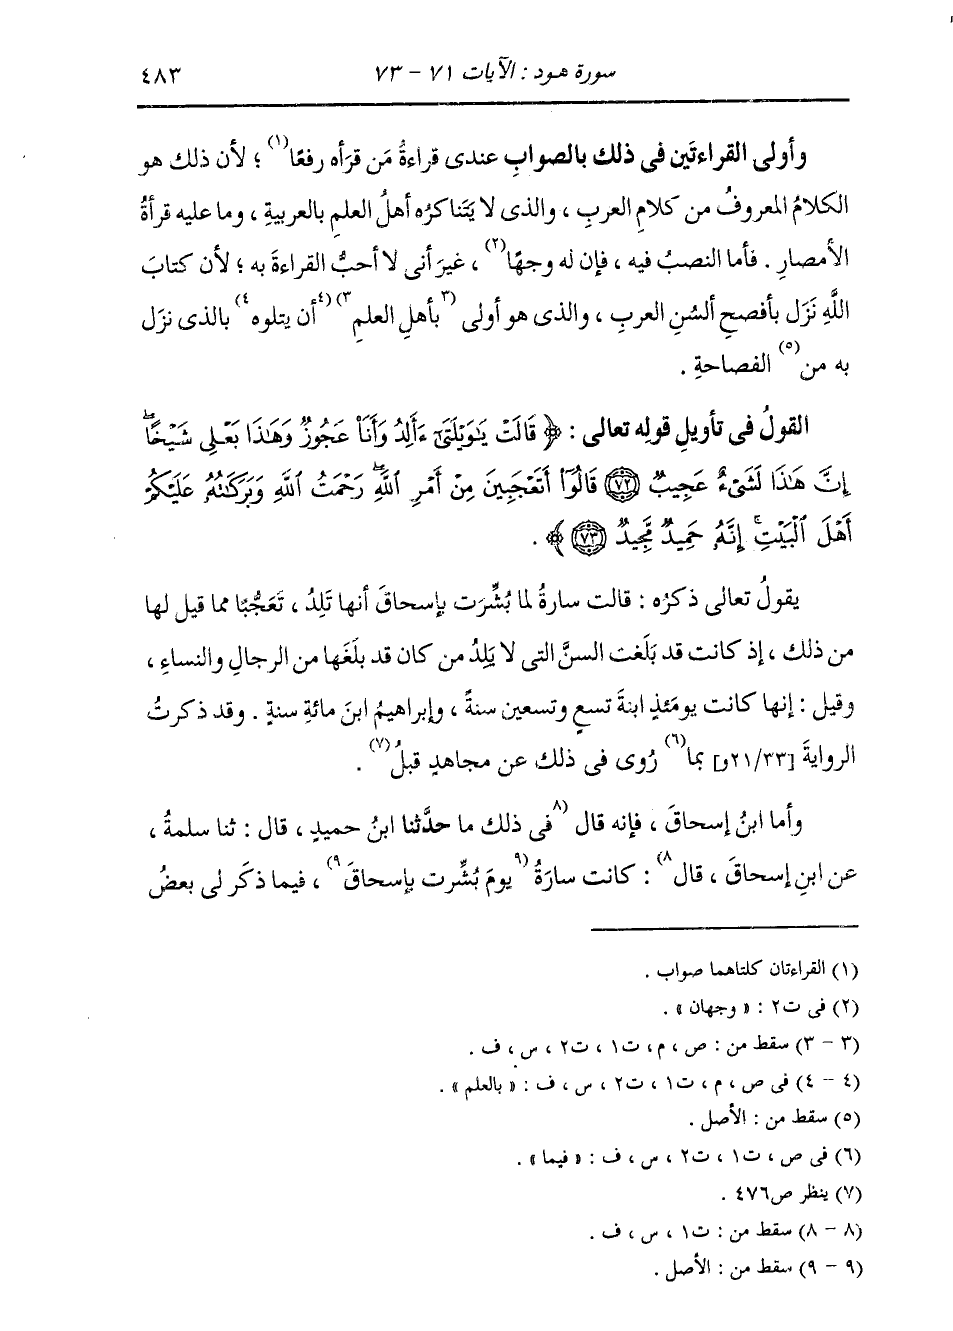 سورة هود : الآيات ٧١ - ٧٣ ٤٨٣
وأولى القراءتَين فى ذلك بالصوابِ عندى قراءةُ مَن قرَأه رفعًا(١) ؛ لأن ذلك هو
الكلامُ المعروفُ من كلامِ العربِ ، والذى لا يَتَناكرُه أهلُ العلمِ بالعربيةِ ، وما عليه قرأةُ
الأمصارِ . فأما النصبُ فيه ، فإن له وجهًا(٢) ، غيرَ أنى لا أحبُّ القراءةَ به ؛ لأن كتابَ
اللَّهِ نَزَل بأفصحِ ألسُنِ العربِ ، والذى هو أولى (٣بأهلِ العلمِ٣) (٤أن يتلوه٤) بالذى نزَل
به من(٥) الفصاحةِ .
القولُ فى تأويلِ قولِه تعالى : ﴿ قَالَتْ يَٰوَيْلَتَىٰٓ ءَأَلِدُ وَأَنَا۠ عَجُوزٌ وَهَٰذَا بَعْلِى شَيْخًا ۖ
إِنَّ هَٰذَا لَشَىْءٌ عَجِيبٌ ﴿٧٢﴾ قَالُوٓا۟ أَتَعْجَبِينَ مِنْ أَمْرِ ٱللَّهِ ۖ رَحْمَتُ ٱللَّهِ وَبَرَكَٰتُهُۥ عَلَيْكُمْ
أَهْلَ ٱلْبَيْتِ ۚ إِنَّهُۥ حَمِيدٌ مَّجِيدٌ ﴿٧٣﴾ ﴾ .
يقولُ تعالى ذكرُه : قالت سارةُ لما بُشِّرَت بإسحاقَ أنها تَلِدُ ، تَعَجُّبًا مما قيل لها
من ذلك ، إذ كانت قد بَلَغت السنَّ التى لا يَلِدُ من كان قد بلَغَها من الرجالِ والنساءِ ،
وقيل : إنها كانت يومَئذٍ ابنةَ تسعٍ وتسعين سنةً ، وإبراهيمُ ابنَ مائةِ سنةٍ . وقد ذكرتُ
الروايةَ [٢١/٣٣و] بما(٦) رُوى فى ذلك عن مجاهدٍ قبلُ(٧) .
وأما ابنُ إسحاقَ ، فإنه قال (٨فى ذلك ما حدَّثنا ابنُ حميدٍ ، قال : ثنا سلمةُ ،
عن ابنِ إسحاقَ ، قال٨) : كانت سارَةُ (٩يومَ بُشِّرت بإسحاقَ٩) ، فيما ذكَر لى بعضُ
(١) القراءتان كلتاهما صواب .
(٢) فى ت٢ : « وجهان » .
(٣ - ٣) سقط من : ص ، م ، ت١ ، ت٢ ، س ، ف .
(٤ - ٤) فى ص ، م ، ت١ ، ت٢ ، س ، ف : « بالعلم » .
(٥) سقط من : الأصل .
(٦) فى ص ، ت١ ، ت٢ ، س ، ف : « فيما » .
(٧) ينظر ص٤٧٦ .
(٨ - ٨) سقط من : ت١ ، س ، ف .
(٩ - ٩) سقط من : الأصل .